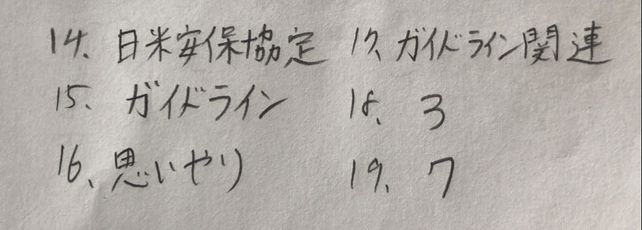 14、日米安保協定
15、ガイドライン
16、思いやり
17、ガイドライン関連
18、3
19、7